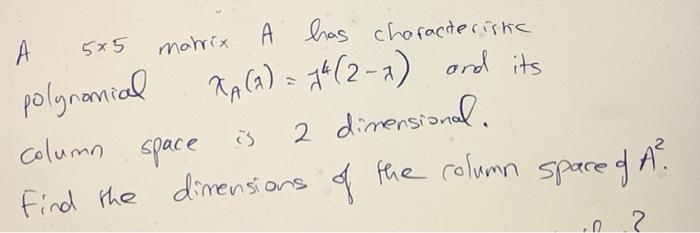 A 5×5 matrix A has characteristic
polynomial χ_A(λ) = λ⁴(2-λ) and its
column space is 2 dimensional.
Find the dimensions of the column space of A².
?